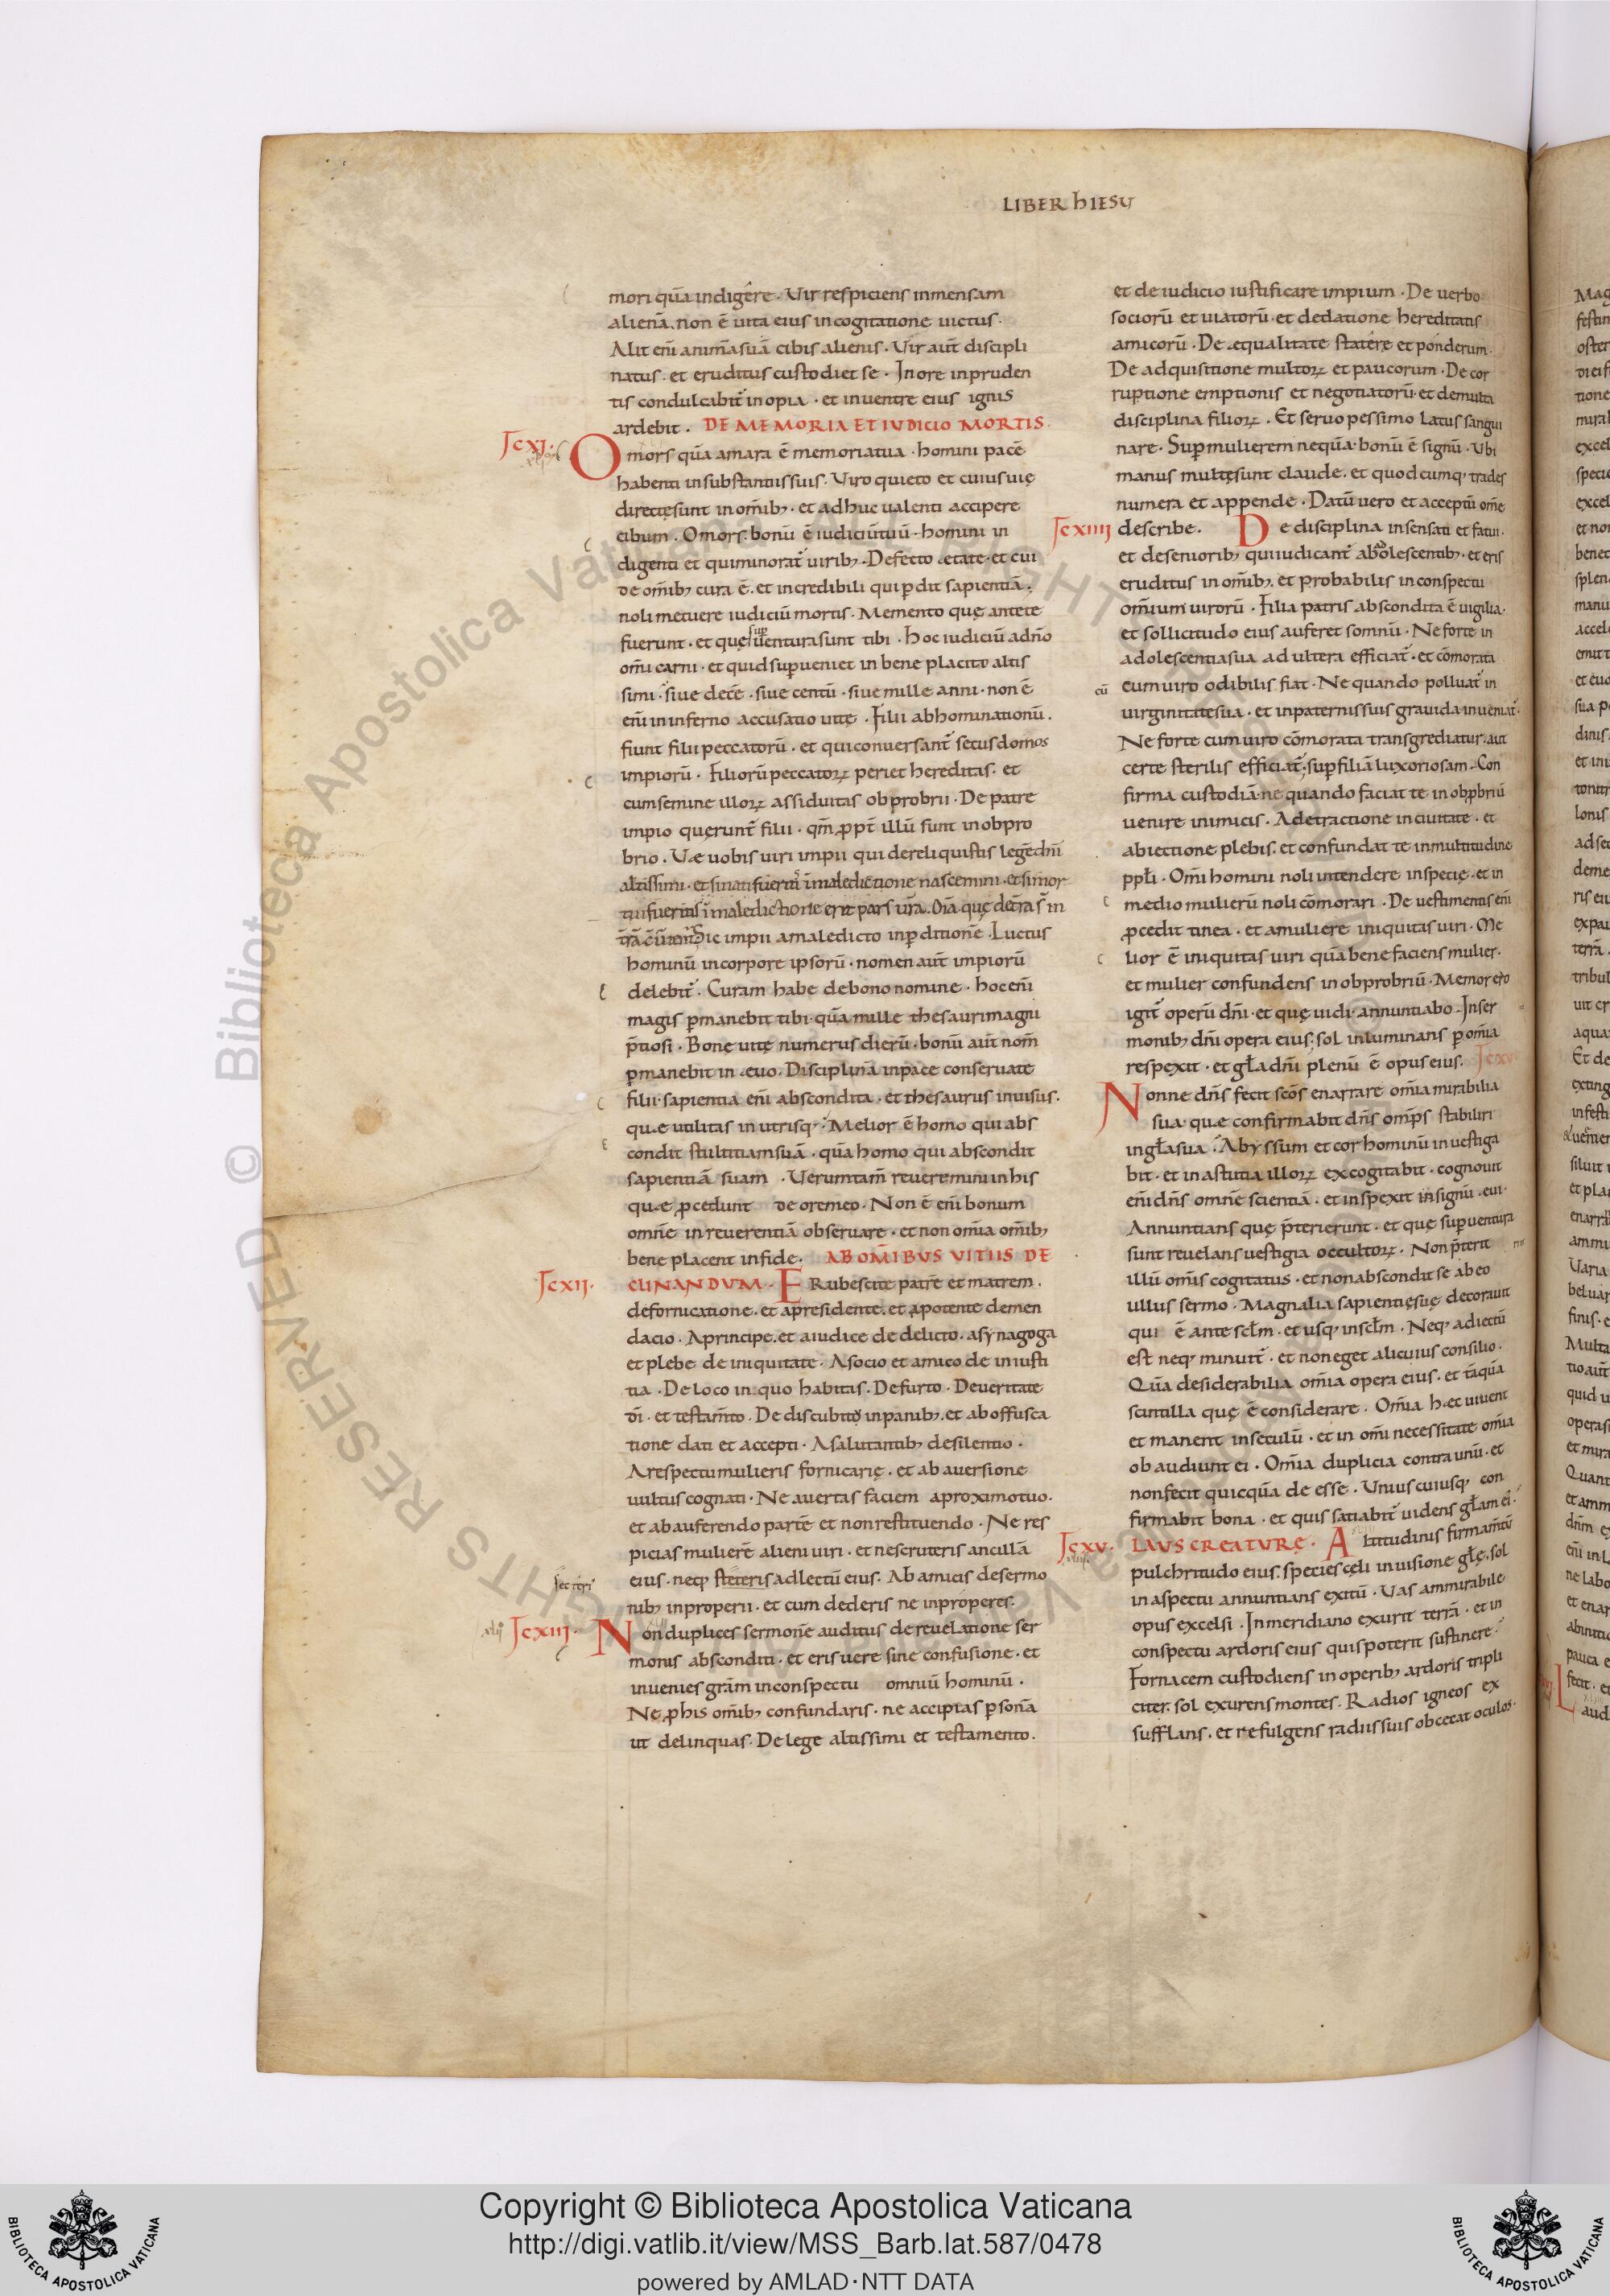 LIBER hIESV
mori quā indigere · Vir respiciens inmensam
alienā, non ē uita eius in cogitatione uictus ·
Alit eni animāsuā cibis alienis · Vir aut̄ discipli
natus · et eruditus custodiet se · In ore inpruden
tis condulcabit̄ inopia · et inuentre eius ignis
ardebit . DE MEMORIA ET IVDICIO MORTIS .
Jcxi.
O mors quā amara ē memoriatua · homini pacē
habenti insubstantiissuis · Viro quieto et cuiusuię
directęsunt in om̄ib; · et adhuc ualenti accipere
cibum . O mors: bonū ē iudiciūtuū · homini in
digenti et quiminorat̄ uirib; · Defecto ætate · et cui
de om̄ib; cura ē · et incredibili qui pdit sapientiā ·
noli metuere iudiciū mortis · Memento quę antete
fuerunt · et quę sup uenturasunt tibi · hoc iudiciū adn̄o
om̄i carni · et quid supueniet in bene placito altis
simi · siue decē · siue centū · siue mille anni · non ē
eni in inferno accusatio uitę · Filii abhominationū .
fiunt filii peccatorū · et qui conuersant̄ secus domos
impiorū · Filiorū peccatoꝝ periet hereditas · et
cumsemine illoꝝ assiduitas obprobrii · De patre
impio querunt̄ filii · qm̄ ꝓpt̄ illū sunt inobpro
brio . Væ uobis uiri impii qui dereliquistis legē dn̄i
altissimi · et sinatifueritī īmaledictione nascemini · et simor
tui fueritis ī maledictione erit pars ur̄a . Oīa quę det̄ra s̄ in
Sic impii amaledicto inpditionē · Luctus
hominū incorpore ipsorū · nomen aut̄ impiorū
delebit̄ . Curam habe de bono nomine · hoc eni
magis pmanebit tibi · quā mille thesaurimagni
p̄tiosi · Bonę uitę numerus dierū · bonū aut̄ nom̄
pmanebit in æuo · Disciplinā inpace conseruate
filii · sapientia eni abscondita · et thesaurus inuisus ·
quæ utilitas in utrisq; · Melior ē homo qui abs
condit stultitiamsuā · quā homo qui abscondit
sapientiā suam · Verumtam̄ reueremini in his
quæ ꝓcedunt de oremeo · Non ē eni bonum
omnē inreuerentiā obseruare · et non om̄ia om̄ib;
bene placent infide . AB OM̄IBVS VITIIS DE
Jcxij.
CLINANDVM · ERubescite patrē et matrem .
defornicatione · et apresidente · et apotente demen
dacio . Aprincipe · et aiudice de delicto · asynagoga
et plebe de iniquitate · Asocio et amico de iniusti
tia · De loco in quo habitas · De furto · De ueritate
dī · et testam̄to · De discubito inpanib; · et ab offusca
tione dati et accepti · Asalutantib; desilentio ·
Arespectumulieris fornicarię · et ab auersione
uultus cognati · Ne auertas faciem aproximotuo ·
et ab auferendo partē et nonrestituendo · Ne res
picias mulierē alieni uiri · et nescruteris ancillā
eius · neq; steteris adlectū eius · Ab amicis desermo
nib; inproperii · et cum dederis ne inproperes ·
Jcxiij.
Non duplices sermonē auditus de reuelatione ser
monis absconditi · et eris uere sine confusione · et
inuenies grām inconspectu omniū hominū .
Ne ꝓhis om̄ib; confundaris · ne accipias psonā
ut delinquas · Delege altissimi et testamento .
et de iudicio iustificare impium · De uerbo
sociorū et uiatorū · et dedatione hereditatis
amicorū · De æqualitate stateræ et ponderum ·
De adquisitione multoꝝ et paucorum · De cor
ruptione emptionis et negotiatorū · et demulta
disciplina filioꝝ . Et seruo pessimo latus sangui
nare · Sup mulierem nequā · bonū ē signū · Vbi
manus multęsunt claude · et quodcumq; trades
numera et appende · Datū uero et acceptū om̄e
Jcxiiij
describe . De disciplina insensati et fatui ·
et deseniorib; quiiudicant̄ ab adolescentib; · et eris
eruditus in om̄ib; · et probabilis inconspectu
om̄ium uirorū · Filia patris abscondita ē uigilia ·
et sollicitudo eius auferet somnū · Ne forte in
adolescentiasua adultera efficiat̄ · et cōmorata
cū
eumuiro odibilis fiat · Ne quando polluat̄ in
uirginitatesua · et inpaternissuis grauida inueniat̄ ·
Ne forte cumuiro cōmorata transgrediatur · aut
certe sterilis efficiat̄ · sup filiā luxoriosam · Con
firma custodiā · ne quando faciat te in obpbriū
uenire inimicis · Adetractione inciuitate · et
abiectione plebis · et confundat te inmultitudine
ppłi · Om̄i homini noli intendere inspecię · et in
medio mulierū noli cōmorari · De uestimentis eni
ꝓcedit tinea · et amuliere iniquitas uiri · Me
lior ē iniquitas uiri quā bene faciens mulier ·
et mulier confundens in obprobriū · Memor ero
igit̄ operū dn̄i · et quę uidi · annuntiabo · Inser
monib; dn̄i opera eius · sol inluminans p om̄ia
respexit · et gła dn̄i plenū ē opus eius .
Jcxv
Nonne dn̄s fecit sc̄os enarrare om̄ia mirabilia
sua · quæ confirmabit dn̄s om̄ps stabiliri
ingłasua · Abyssum et cor hominū inuestiga
bit · et in astutia illoꝝ excogitabit · cognouit
eni dn̄s omnē scientiā · et inspexit insignū æui ·
Annuntians quę p̄terierunt · et quę supuentura
sunt reuelans uestigia occultoꝝ · Non p̄terit
illū om̄is cogitatus · et nonabscondit se ab eo
ullus sermo · Magnalia sapientięsuę decorauit
qui ē ante scłm · et usq; inscłm · Neq; adiectū
est neq; minuit̄ · et noneget alicuius consilio ·
Quā desiderabilia om̄ia opera eius · et tāquā
scintilla quę ē considerare · Om̄ia hæc uiuent
et manent inseculū · et in om̄i necessitate om̄ia
obaudiunt ei · Om̄ia duplicia contra unū · et
nonfecit quicquā de esse · Vnius cuiusq; con
firmabit bona · et quis satiabit̄ uidens głam ei ·
Jcxv.
LAVS CREATVRE · Altitudinis firmam̄tū
pulchritudo eius · species cęli inuisione głę · sol
in aspectu annuntians exitū · Vas ammirabile
opus excelsi · Inmeridiano exurit terrā · et in
conspectu ardoris eius quispoterit sustinere ·
Fornacem custodiens in operib; ardoris tripli
citer · sol exurens montes · Radios igneos ex
sufflans · et refulgens radiissuis obcecat oculos ·
Copyright © Biblioteca Apostolica Vaticana
http://digi.vatlib.it/view/MSS_Barb.lat.587/0478
powered by AMLAD·NTT DATA
BIBLIOTECA APOSTOLICA VATICANA
BIBLIOTECA APOSTOLICA VATICANA
© Biblioteca Apostolica Vaticana ALL RIGHTS RESERVED